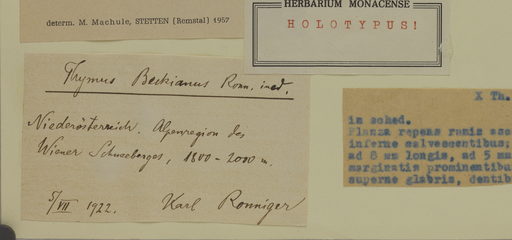 determ. M. Machule, STETTEN (Remstal) 1957
HERBARIUM MONACENSE
HOLOTYPUS!
Thymus Beckianus Ronn. ined.
Niederösterreich. Alpenregion des
Wiener Schneeberges, 1800-2000 m.
5/VII 1922. Karl Ronniger
X Th.
in sched.
Planta repens ramis
inferne calvescentibus;
ad 8 mm longis, ad 5 mm
marginatis prominentibus
superne glabris,